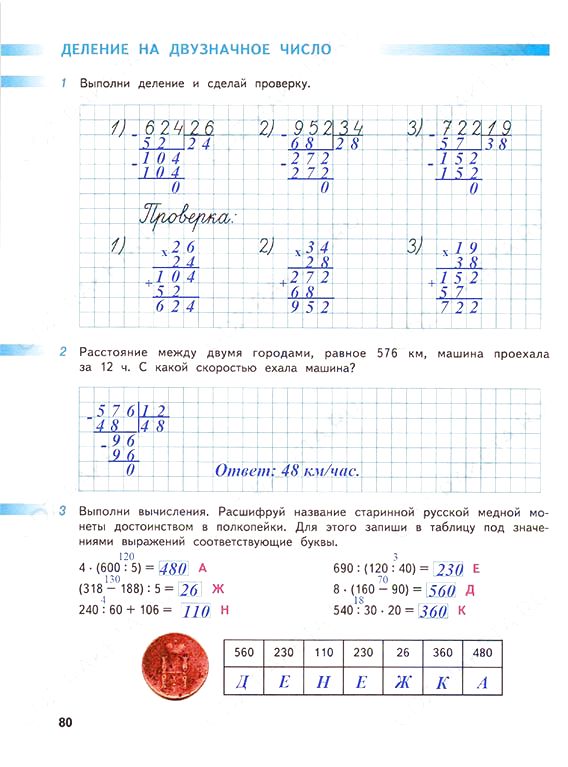 ДЕЛЕНИЕ НА ДВУЗНАЧНОЕ ЧИСЛО
1 Выполни деление и сделай проверку.
1) 624 26 2) 952 34 3) 722 19
- 52 24 - 68 28 - 57 38
- 104 - 272 - 152
104 272 152
0 0 0
Проверка:
1) x 26 2) x 34 3) x 19
24 28 38
+ 104 + 272 + 152
52 68 57
624 952 722
2 Расстояние между двумя городами, равное 576 км, машина проехала
за 12 ч. С какой скоростью ехала машина?
- 576 12
48 48
- 96
96
0 Ответ: 48 км/час.
3 Выполни вычисления. Расшифруй название старинной русской медной мо-
неты достоинством в полкопейки. Для этого запиши в таблицу под значе-
ниями выражений соответствующие буквы.
120 3
4 · (600 : 5) = 480 А 690 : (120 : 40) = 230 Е
130 70
(318 − 188) : 5 = 26 Ж 8 · (160 − 90) = 560 Д
4 18
240 : 60 + 106 = 110 Н 540 : 30 · 20 = 360 К
560 230 110 230 26 360 480
Д Е Н Е Ж К А
80